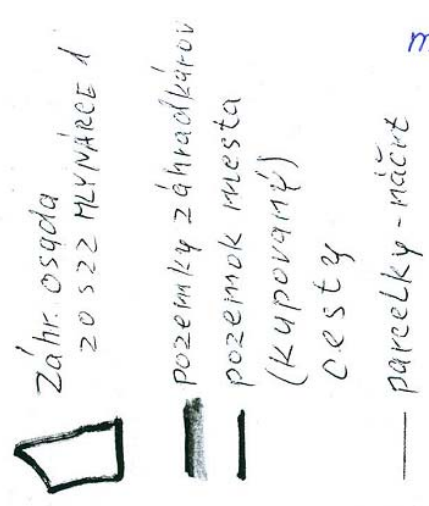 Záhr. osada
20 SZZ MLYNÁRCE 1
pozemky záhradkárov
pozemok mesta
(kupovaný)
cesty
parcelky - náčrt
m